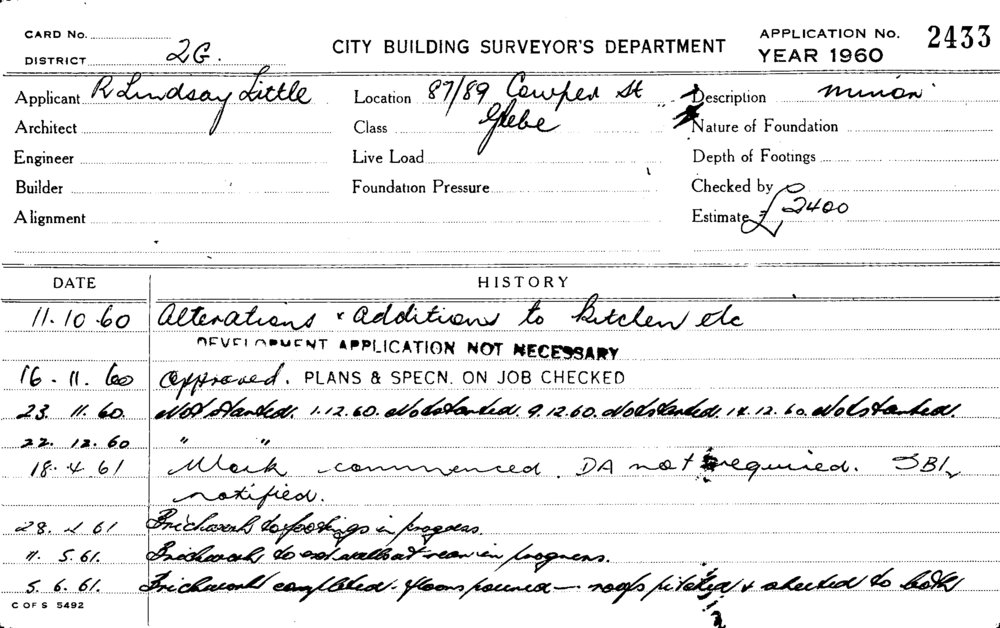 CARD No.
DISTRICT 2G.
CITY BUILDING SURVEYOR'S DEPARTMENT
APPLICATION No. 2433
YEAR 1960
Applicant R Lindsay Little
Location 87/89 Cowper St
Glebe
Description minor
Architect
Class
Nature of Foundation
Engineer
Live Load
Depth of Footings
Builder
Foundation Pressure
Checked by
Alignment
Estimate £2400
DATE HISTORY
11.10.60 Alterations & additions to kitchen etc
DEVELOPMENT APPLICATION NOT NECESSARY
16.11.60 Approved. PLANS & SPECN. ON JOB CHECKED
23.11.60. Not started. 1.12.60. Not started. 9.12.60. Not started. 14.12.60. Not started.
22.12.60 " "
18.4.61 Work commenced. DA not required. SBI
notified.
28.4.61 Brickwork to footings in progress.
11.5.61. Brickwork to ext walls at rear in progress.
5.6.61. Brickwork completed. floors poured — roofs pitched & sheeted to both
C OF S 5492